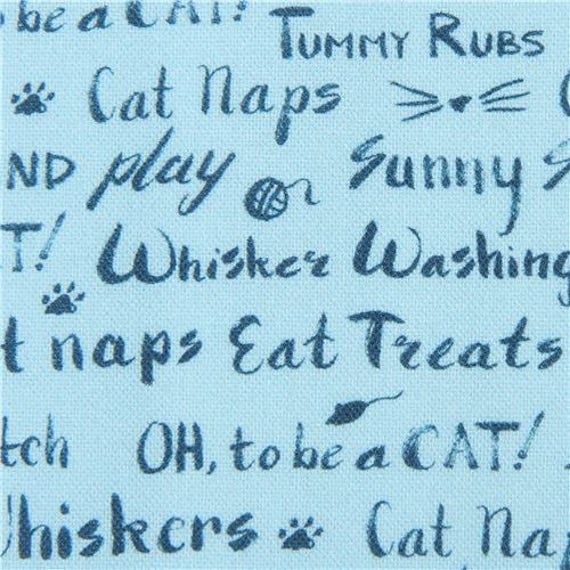 be a CAT!
TUMMY RUBS
Cat Naps
ND play Sunny S
T! Whisker Washing
t naps Eat Treats
tch OH, to be a CAT!
hiskers Cat Nap